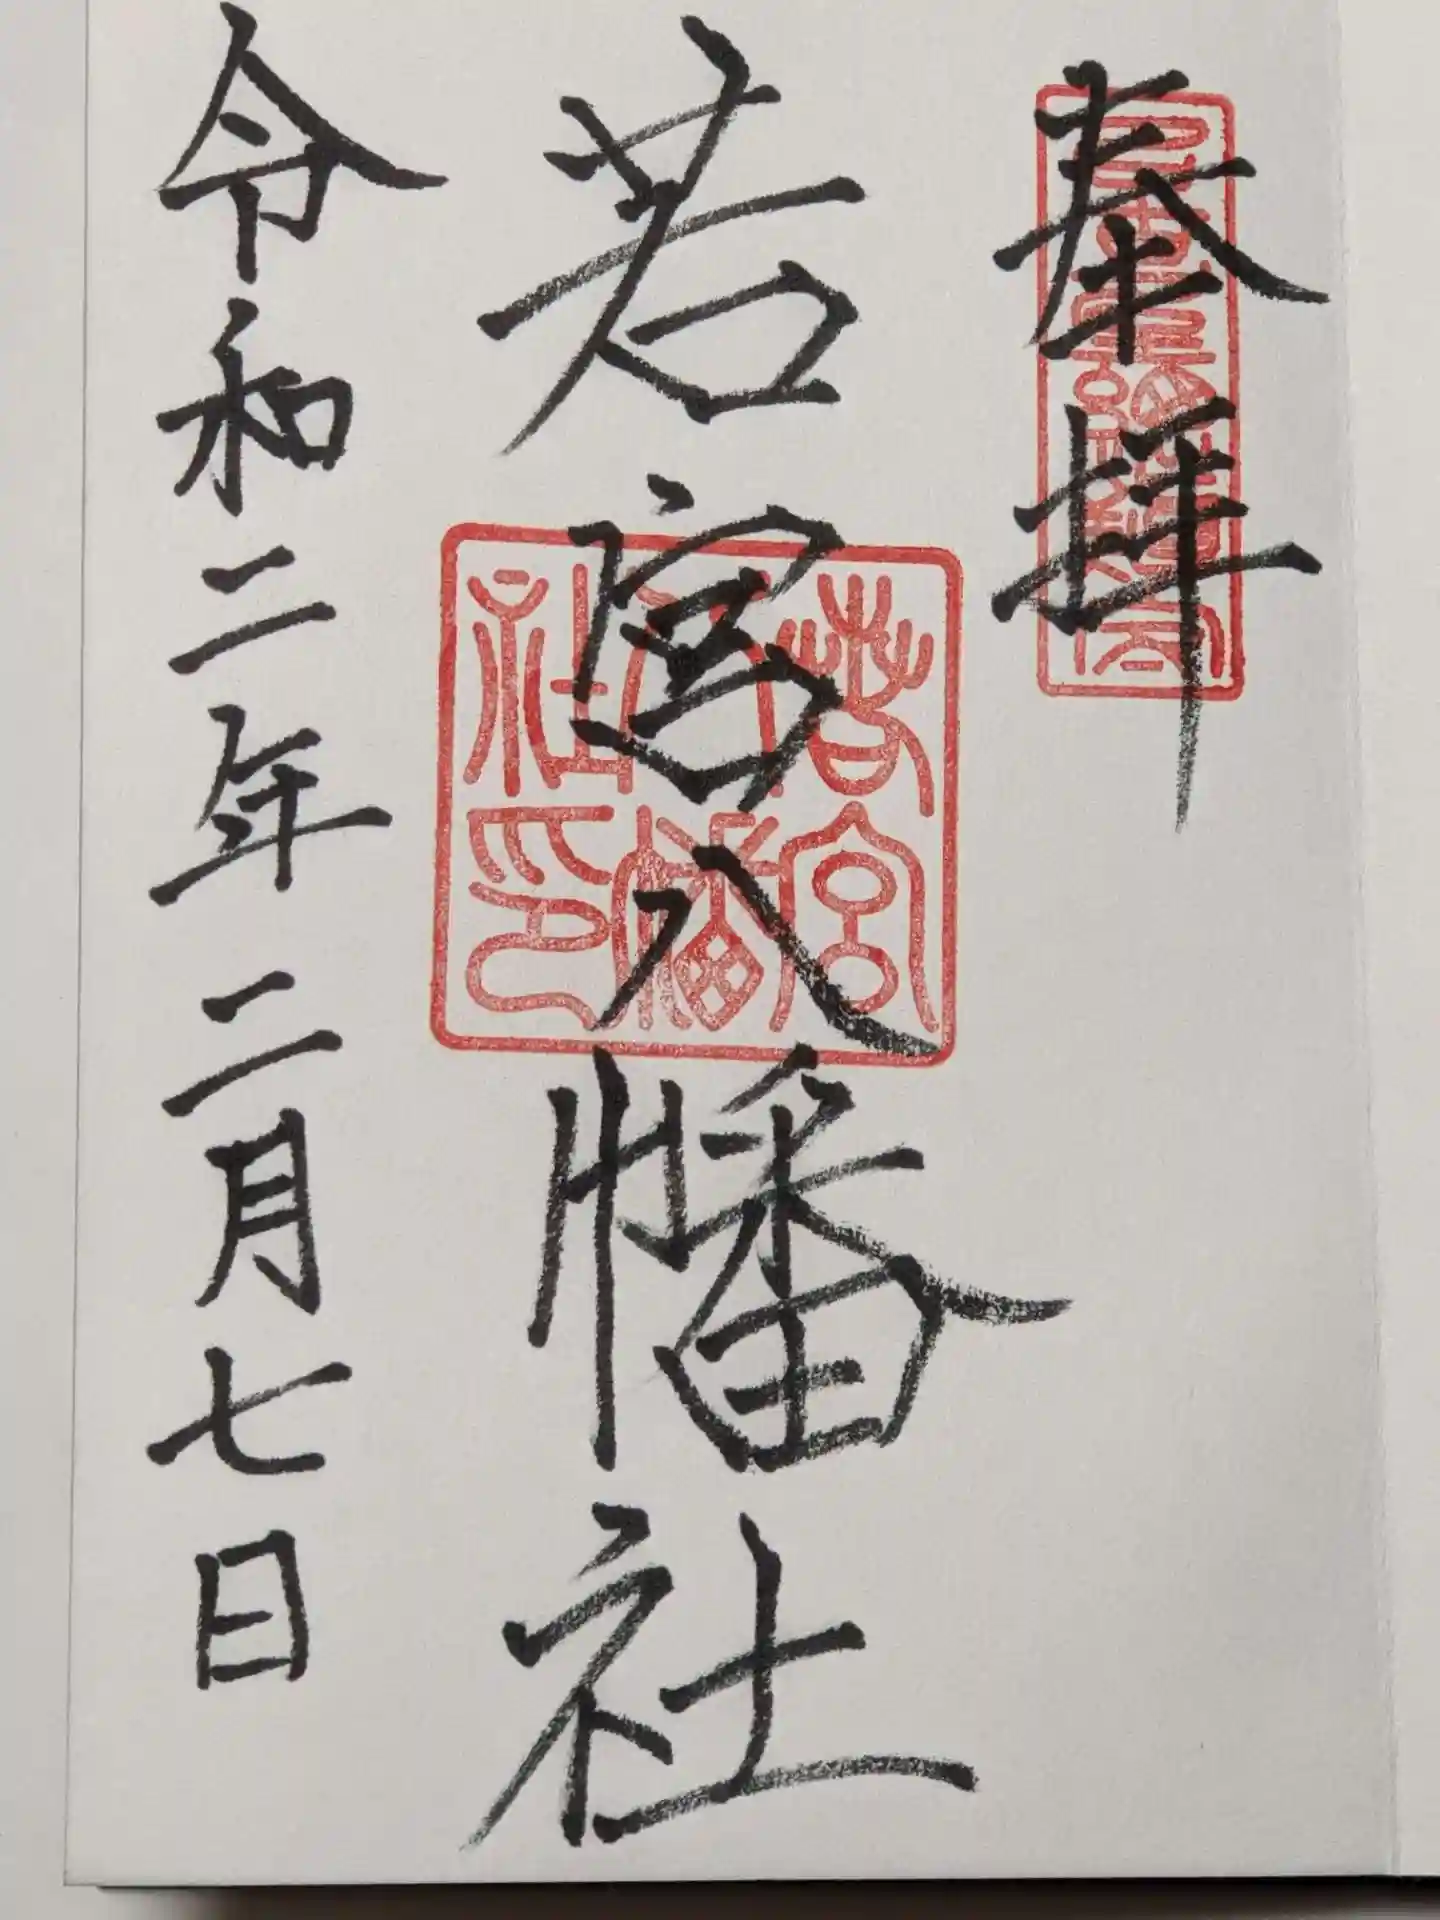 奉拝
若宮八幡社
若宮八幡社印
令和二年二月七日